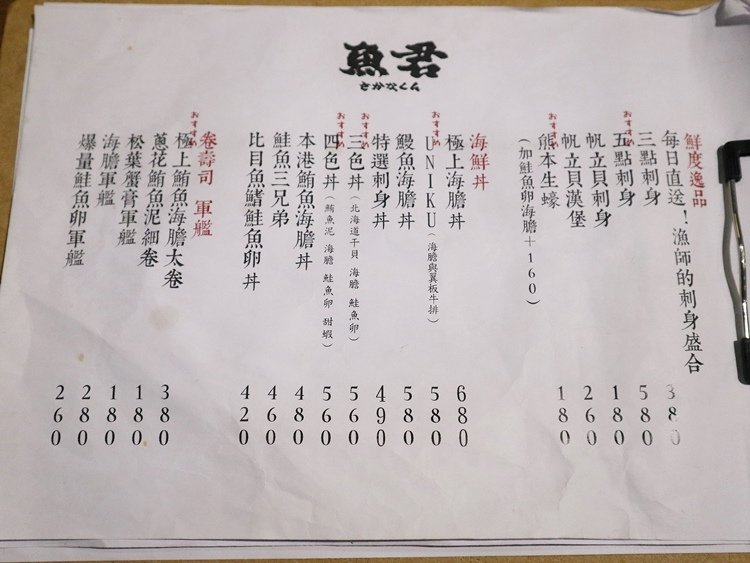 魚君
さかなくん
鮮度逸品
每日直送！漁師的刺身盛合
三點刺身 380
おすすめ
五點刺身 580
帆立貝刺身 180
帆立貝漢堡 260
おすすめ
熊本生蠔 180
(加鮭魚卵海膽+160)
海鮮丼
極上海膽丼 680
おすすめ
UNIKU(海膽與翼板牛排) 580
鰻魚海膽丼 580
特選刺身丼 490
おすすめ
三色丼(北海道干貝 海膽 鮭魚卵) 560
おすすめ
四色丼(鮪魚泥 海膽 鮭魚卵 甜蝦) 560
本港鮪魚海膽丼 480
鮭魚三兄弟 460
比目魚鰭鮭魚卵丼 420
卷壽司 軍艦
おすすめ
極上鮪魚海膽太卷 380
蔥花鮪魚泥細卷 180
松葉蟹膏軍艦 180
海膽軍艦 280
爆量鮭魚卵軍艦 260